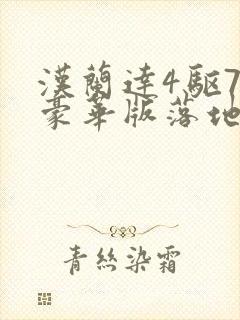 漢蘭達4驅7
豪華版落地
青絲染霜